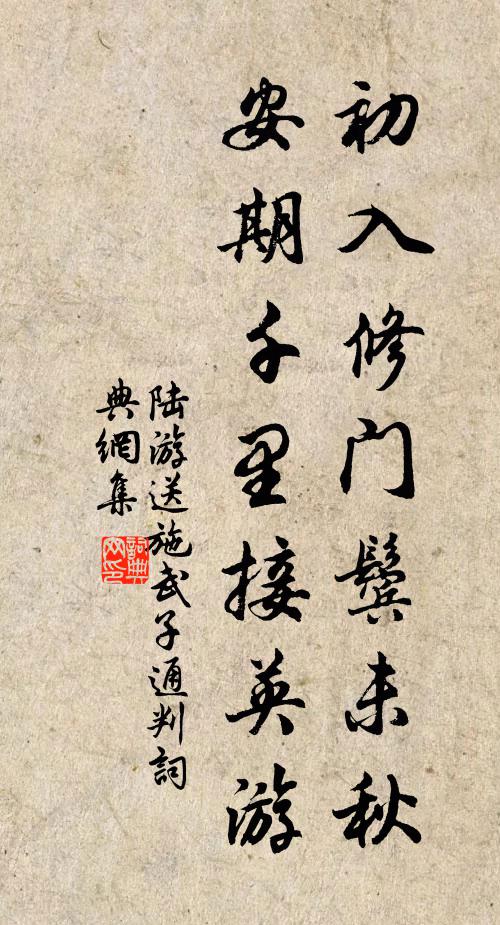 初入修门鬓未秋
安期千里接英游
陆游送施武子通判詞
典網集
詞典
网印